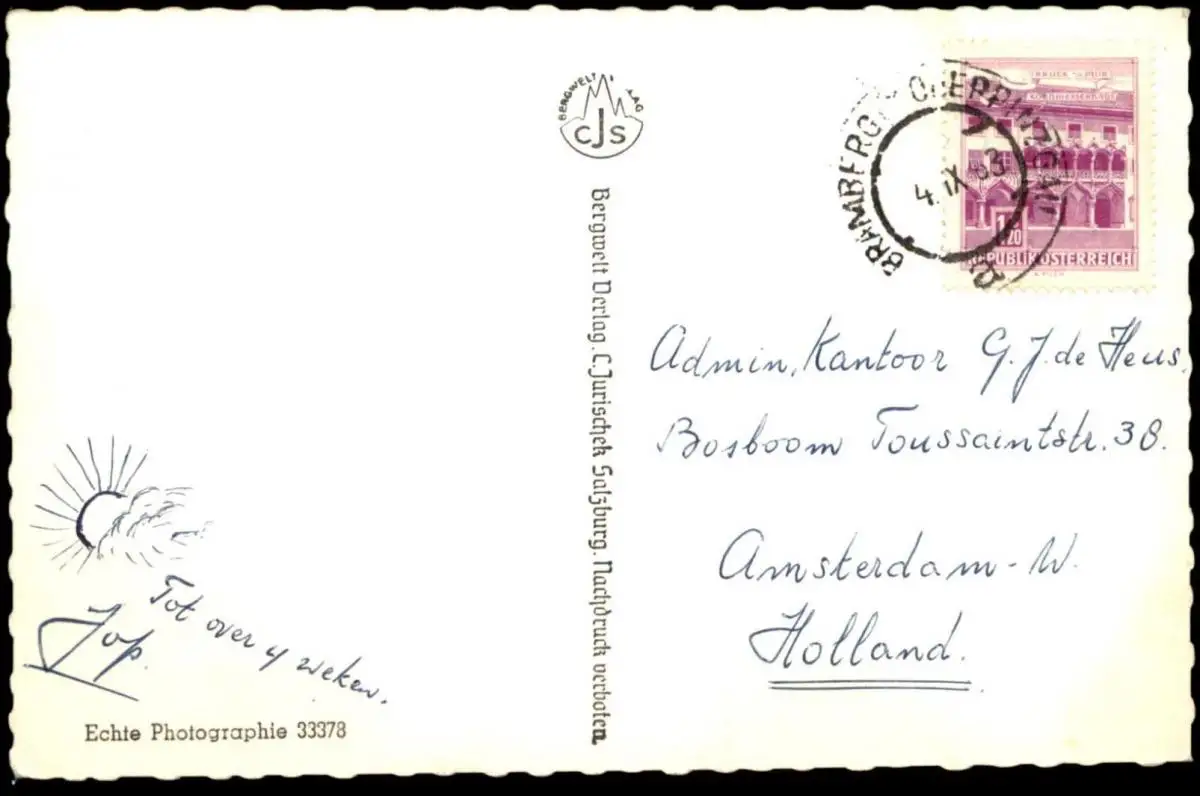 BERGWELT VERLAG
CJS
Bergwelt Verlag. C. Jurischek Salzburg. Nachdruck verboten
BRUCK a.d. MUR
KORNMESSERHAUS
1.20
REPUBLIK ÖSTERREICH
BRAMBERG, OBERPINZGAU
4. IX 63
Admin, Kantoor G. J. de Heus,
Bosboom Toussaintstr. 38.
Amsterdam-W.
Holland.
Tot over 4 weken.
Jop.
Echte Photographie 33378